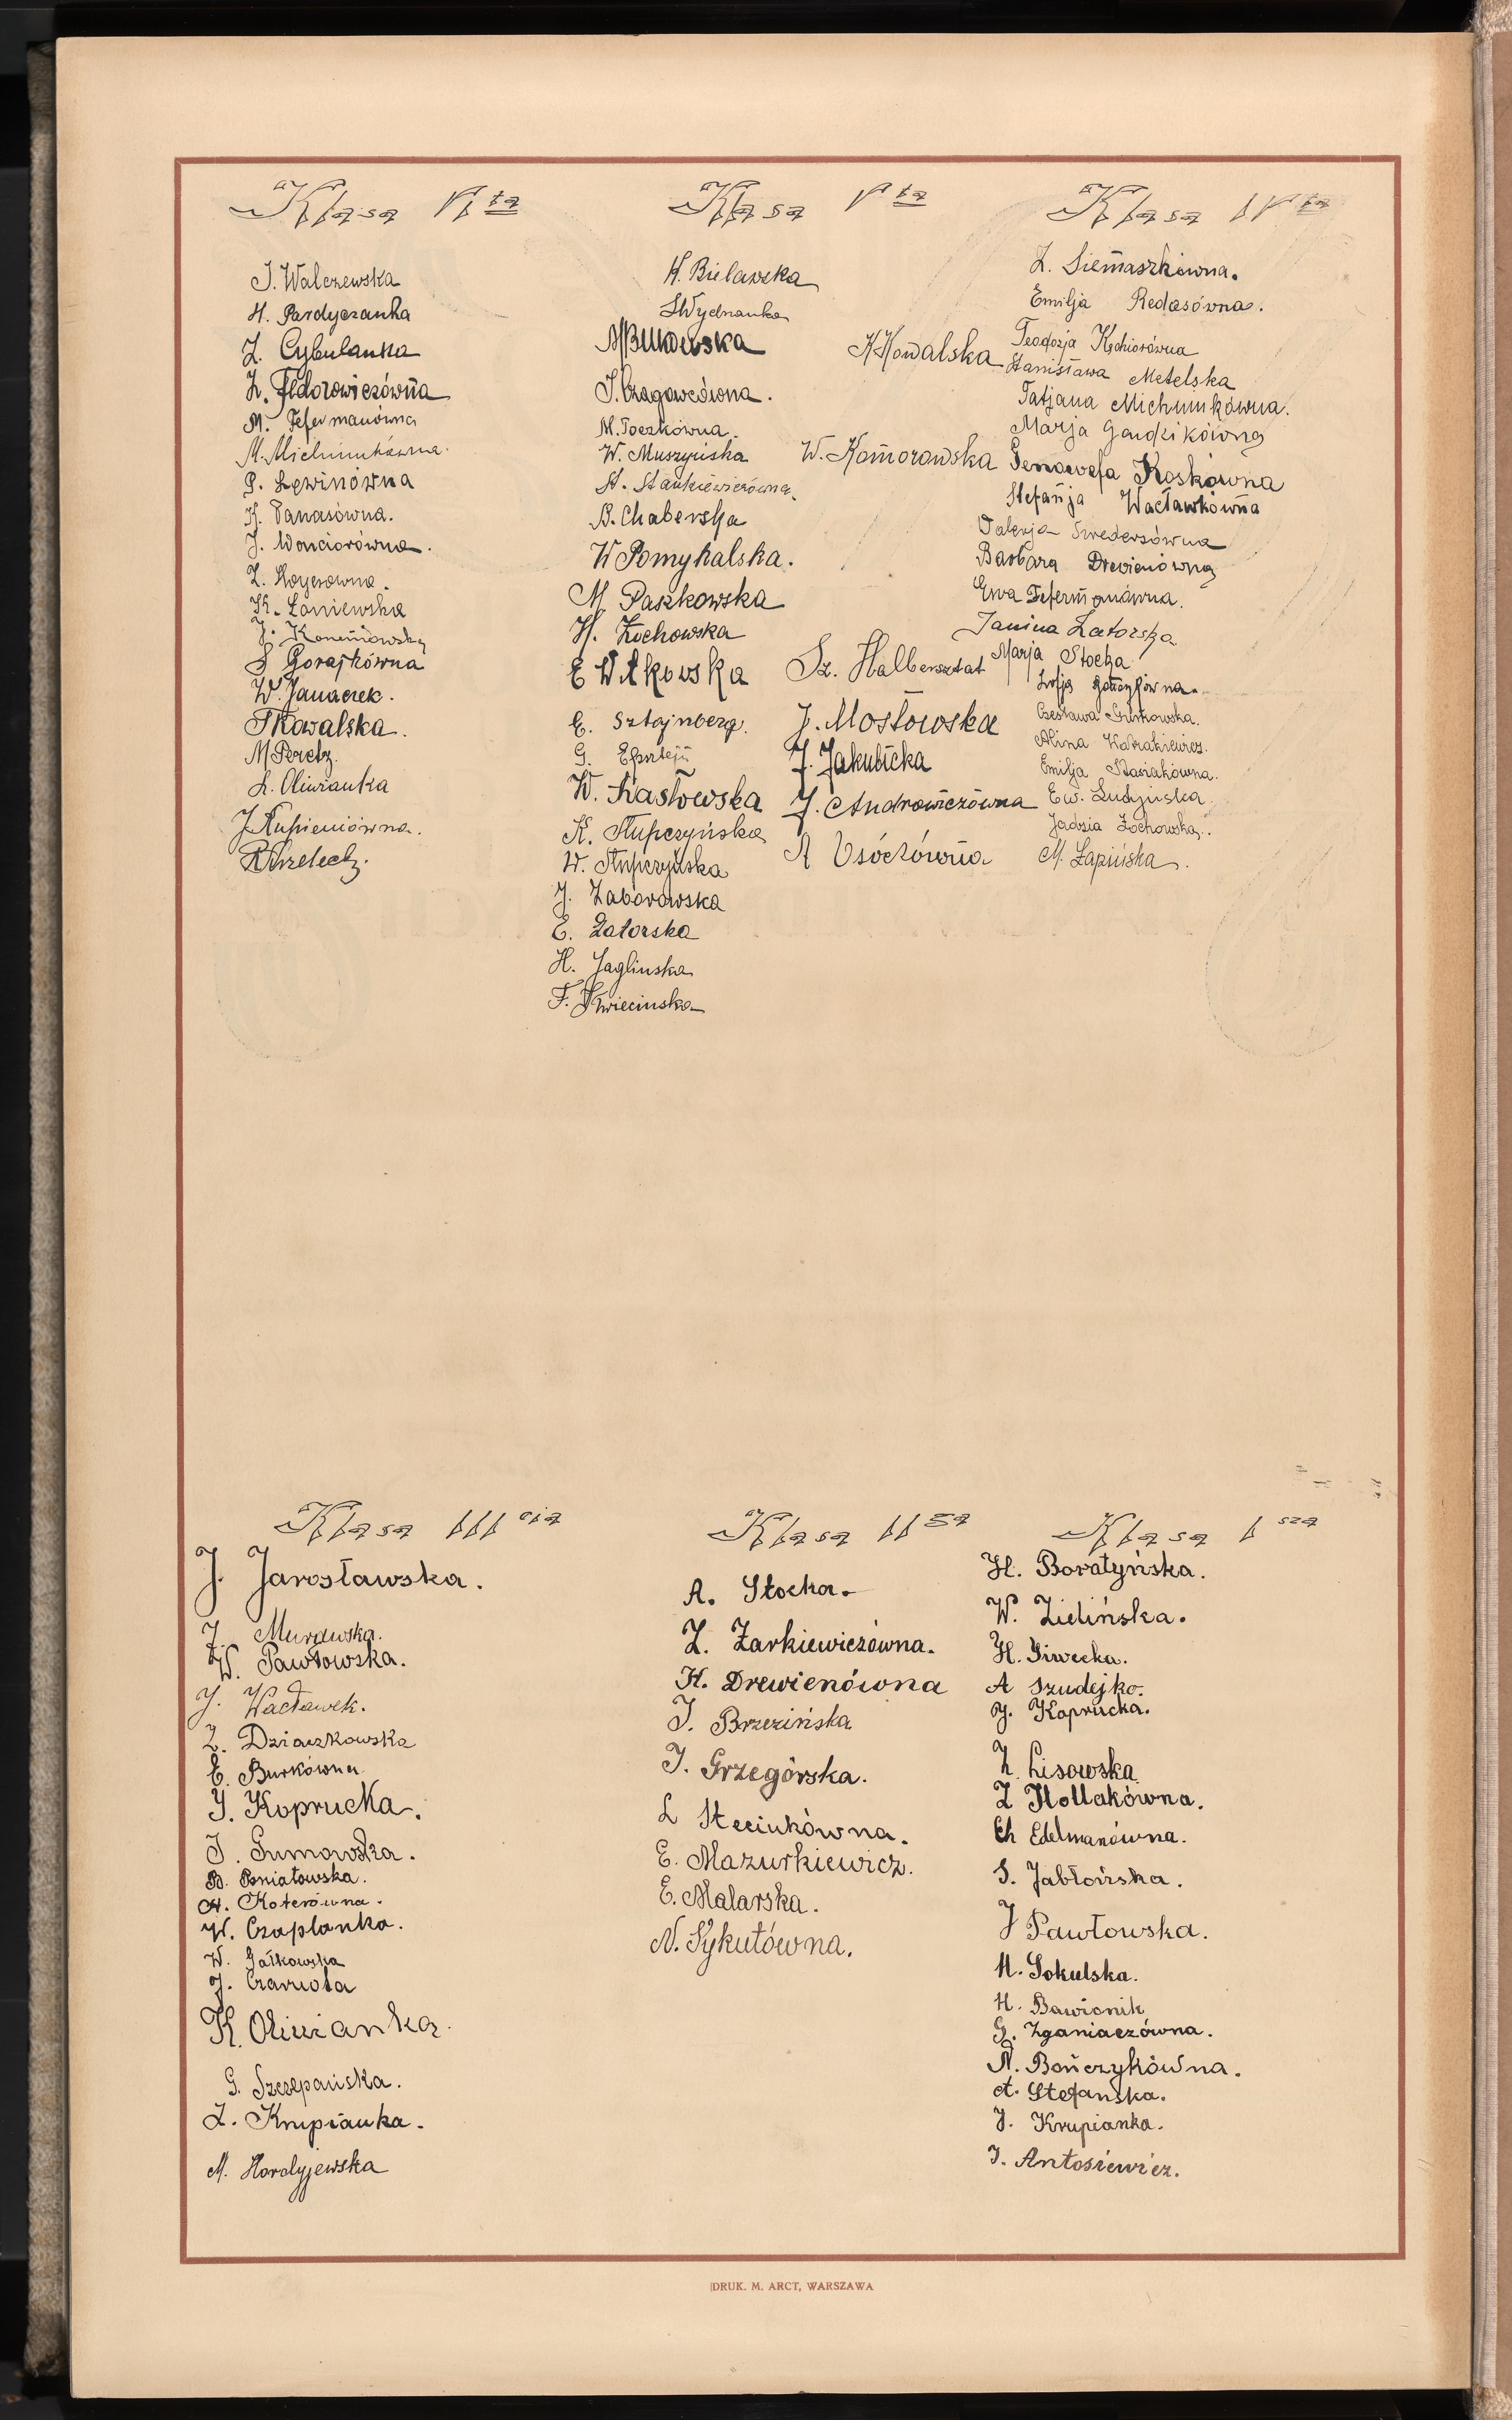 Klasa VI ta
J. Walczewska
H. Pardyczanka
Z. Cybulanka
Z. Fedorowiczówna
M. Fefermanówna
M. Michniukówna.
P. Lewinówna
H. Panasówna.
J. Wonciorówna.
Z. Hoyerowna.
K. Łaniewska
J. Koneniowska
S Gorajkówna
W. Janaczek.
T Kowalska.
M Peretz.
L. Oliwianka
J Kupieniówna.
Klasa V ta
H. Bielawska
S Wydnanka
M Bukowska
J. Czagowcówna.
M. Toczkówna.
W. Muszyńska
St. Stankiewiczówna.
B. Chaberska
W Pomykalska.
M. Paszkowska
H. Żochowska
E Witkowska
E. Sztajnberg.
G. Epsztejn
W. Kasłowska
K. Słupczyńska
W. Słupczyńska
J. Zaborowska
E. Zatorska
H. Jaglinska
F. Kwiecinska
K Kowalska
W. Komorowska
Sz. Halbersztat
J. Mosłowska
J. Jakubicka
J. Androwiczówna
A Usóczówna
Klasa IV ta
Z. Siemaszkówna.
Emilja Redosówna.
Teodozja Kędziorówna
Stanisława Metelska
Tatjana Michniukówna.
Marja Gaudzikówna
Genowefa Koskówna
Stefanja Wacławkówna
Walerja Swedersówna
Barbara Drewienówna
Ewa Fefermanówna.
Janina Zatorska
Marja Stocka
Zofja Bończykówna.
Czesława Grinkowska.
Alina Kondrakiewicz.
Emilja Stasiakówna.
Ew. Ludyńska
Jadzia Żochowska.
M. Łapińska.
Klasa III cia
J. Jarosławska.
J. Murawska.
W. Pawłowska.
J. Wacławek.
Z. Dziaczkowska
E. Burkówna
J. Koprucka.
J. Gumowska.
B. Poniatowska.
H. Koterówna.
W. Czaplanka.
W. Jałkowska
J. Czarnota
K. Oliwianka.
G. Szczepańska.
Z. Krupianka.
M. Hordyjewska
Klasa II ga
A. Stocka.
Z. Żarkiewiczówna.
H. Drewienówna
J. Brzezińska
J. Grzegórska.
L Steciukówna.
E. Mazurkiewicz.
E. Malarska.
N. Sykutówna.
Klasa I sza
H. Boratyńska.
W. Zielińska.
H. Siwecka.
A Szudejko.
J. Koprucka.
Z. Lisowska
Z Hollakówna.
Ch Edelmanówna.
S. Jabłońska.
J Pawłowska.
M. Sokulska.
H. Bawionik
G. Zganiaczówna.
N. Bończykówna.
A. Stefanska.
J. Krupianka.
J. Antosiewicz.
DRUK. M. ARCT, WARSZAWA